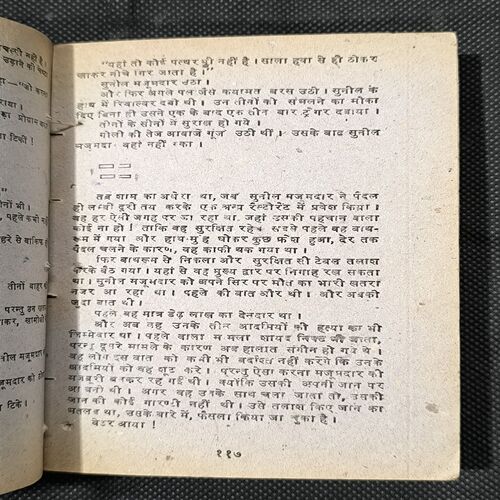 चलती नहीं है !
चढ़ाने की क्षमा
"यहां तो कोई पत्थर भी नहीं है । साला हवा से ही ठोकर
खाकर नीचे गिर जाता है ।"
सुनील मजूमदार उठा ।
और फिर अगले पल जैसे कयामत बरस उठी । सुनील के
हाथ में रिवाल्वर दबी थी । उन तीनों को संभलने का मौका
दिए बिना ही उसने एक के बाद एक तीन बार ट्रीगर दबाया ।
तीनों के सीनों में सुराख हो गये ।
गोली की तेज आवाजें गूंज उठी थीं । उसके बाद सुनील
मजूमदार वहां नहीं रुका ।
तब शाम का अंधेरा था, जब सुनील मजूमदार ने पैदल
ही लम्बी दूरी तय करके एक अन्य रेस्टोरेंट में प्रवेश किया ।
वह हर ऐसी जगह पर जा रहा था, जहां उसकी पहचान वाला
कोई ना हो ! ताकि वह सुरक्षित रहे । सबसे पहले वह बाथ-
रूम में गया और हाथ-मुंह धोकर कुछ फ्रेश हुआ, देर तक
पैदल चलने के कारण, वह काफी थक गया था ।
फिर बाथरूम से निकला और सुरक्षित सी टेबल तलाश
करके बैठ गया । यहां से वह मुख्य द्वार पर निगाह रख सकता
था । सुनील मजूमदार को अपने सिर पर मौत का भारी खतरा
नजर आ रहा था । पहले की बात और थी । और अबकी
जुदा बात थी ।
पहले वह मात्र डेढ़ लाख का देनदार था ।
और अब वह उनके तीन आदमियों की हत्या का भी
जिम्मेवार था । पहले वाला मामला शायद निबट भी जाता,
परन्तु दूसरे मामले के कारण अब हालात संगीन हो गये थे ।
वह लोग इस बात को कभी भी बर्दाश्त नहीं करेंगे कि उनके
आदमियों को वह शूट करे । परन्तु ऐसा करना मजूमदार की
मजबूरी बनकर रह गई थी । क्योंकि उसकी अपनी जान पर
आ बनी थी । अगर वह उनके साथ चला जाता तो, उसकी
जान की कोई गारण्टी नहीं थी । उसे तलाश किए जाने का
मतलब था, उसके बारे में, फैसला किया जा चुका है ।
वेटर आया !
११७